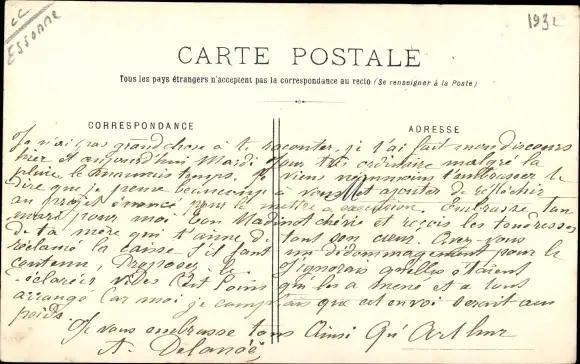 CC
ESSONNE
1932
CARTE POSTALE
Tous les pays étrangers n'acceptent pas la correspondance au recto (Se renseigner à la Poste)
CORRESPONDANCE
ADRESSE
Je n'ai pas grand chose à te raconter, je t'ai fait mon discours
hier et aujourd'hui Mardi jour très ordinaire malgré la
pluie, le mauvais temps. Je viens néanmoins t'embrasser te
dire que je pense beaucoup à vous et ajouter de réfléchir
au projet énoncé pour la mettre à exécution. Embrasse ton
mari pour moi bon chérie et reçois les tendresses
de ta mère qui t'aime de tout son cœur. Avez-vous
réclamé la caisse s'il faut un dédommagement pour le
contenu, le J'ignorais qu'elles étaient
éclarées qui les a mené et a tout
arrangé Car moi je comptais que cet envoi serait au
poids.
Je vous embrasse tous Ainsi Qu'Arthur
A. Delanoë